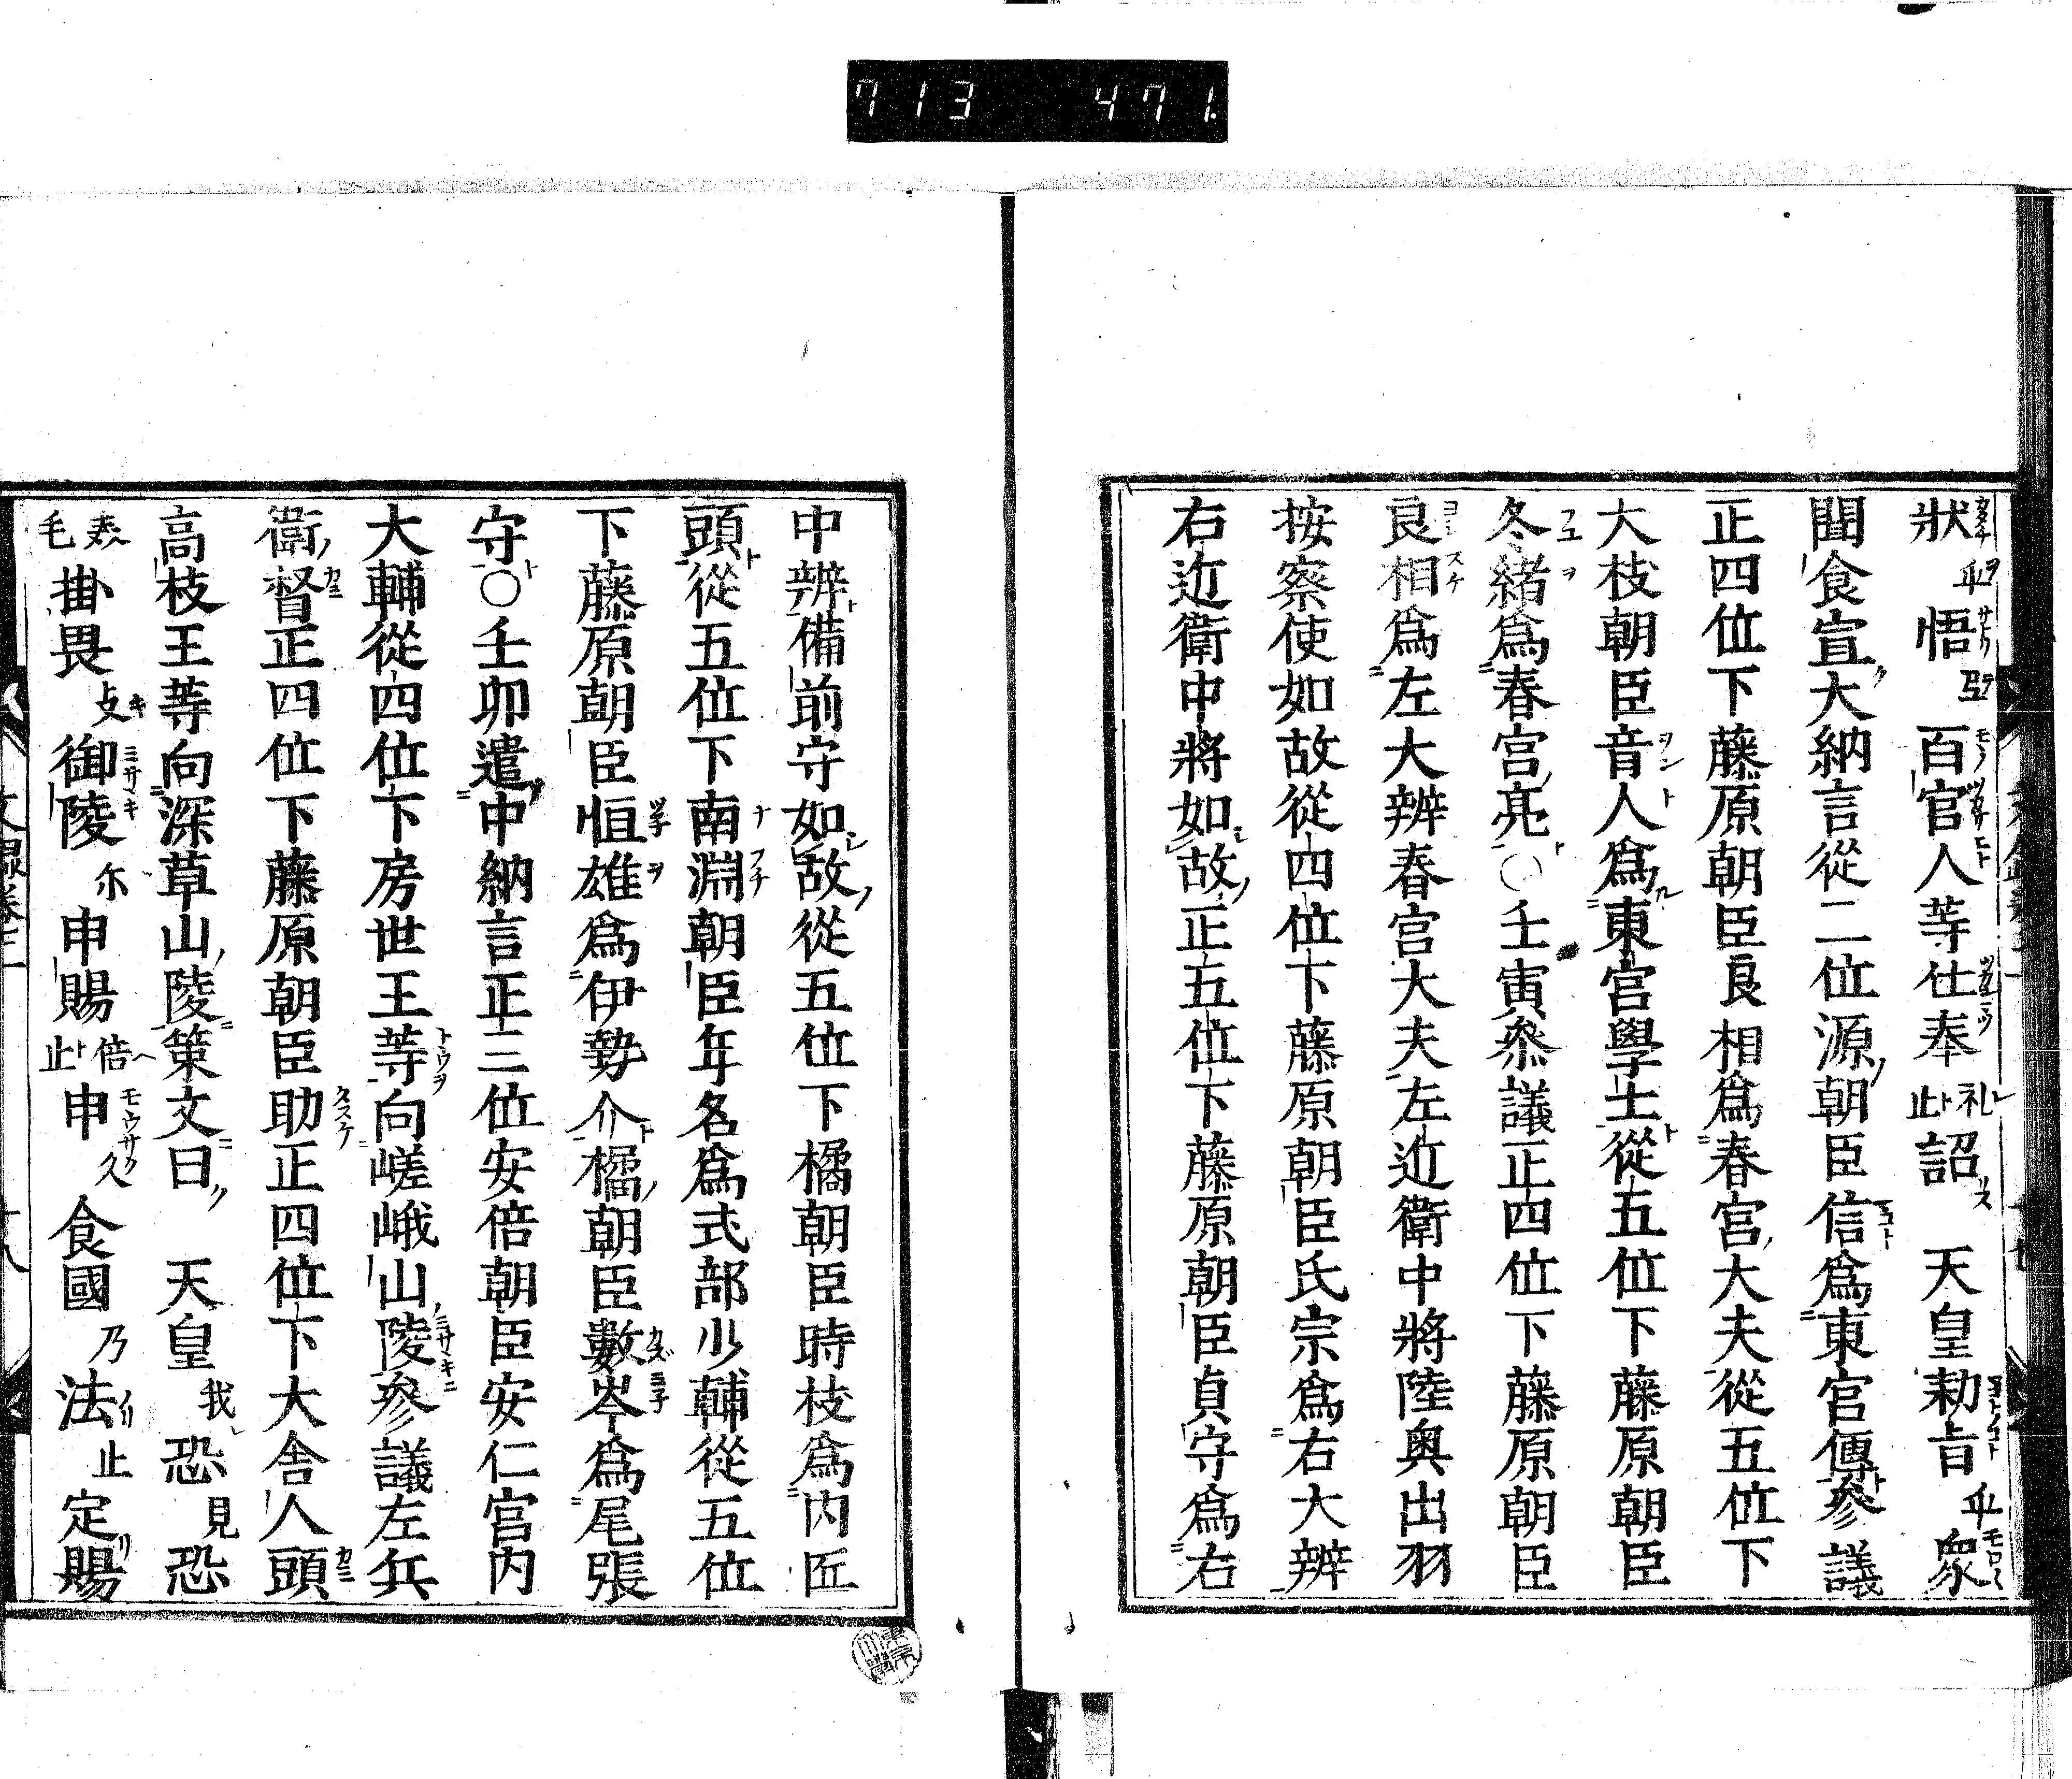 713 471.
狀乎悟弖百官人等仕奉礼止詔天皇勅旨乎衆
聞食宣大納言從二位源朝臣信爲東宮傅參議
正四位下藤原朝臣良相爲春宮大夫從五位下
大枝朝臣音人爲東宮學士從五位下藤原朝臣
冬緒爲春宮亮○壬寅參議正四位下藤原朝臣
良相爲左大辨春宮大夫左近衛中將陸奥出羽
按察使如故從四位下藤原朝臣氏宗爲右大辨
右近衛中將如故正五位下藤原朝臣貞守爲右
中辨備前守如故從五位下橘朝臣時枝爲内匠
頭從五位下南淵朝臣年名爲式部少輔從五位
下藤原朝臣恒雄爲伊勢介橘朝臣數岑爲尾張
守○壬卯遣中納言正三位安倍朝臣安仁宮内
大輔從四位下房世王等向嵯峨山陵參議左兵
衛督正四位下藤原朝臣助正四位下大舍人頭
高枝王等向深草山陵策文曰天皇我恐見恐
毛掛畏支御陵尓申賜倍止申久食國乃法止定賜